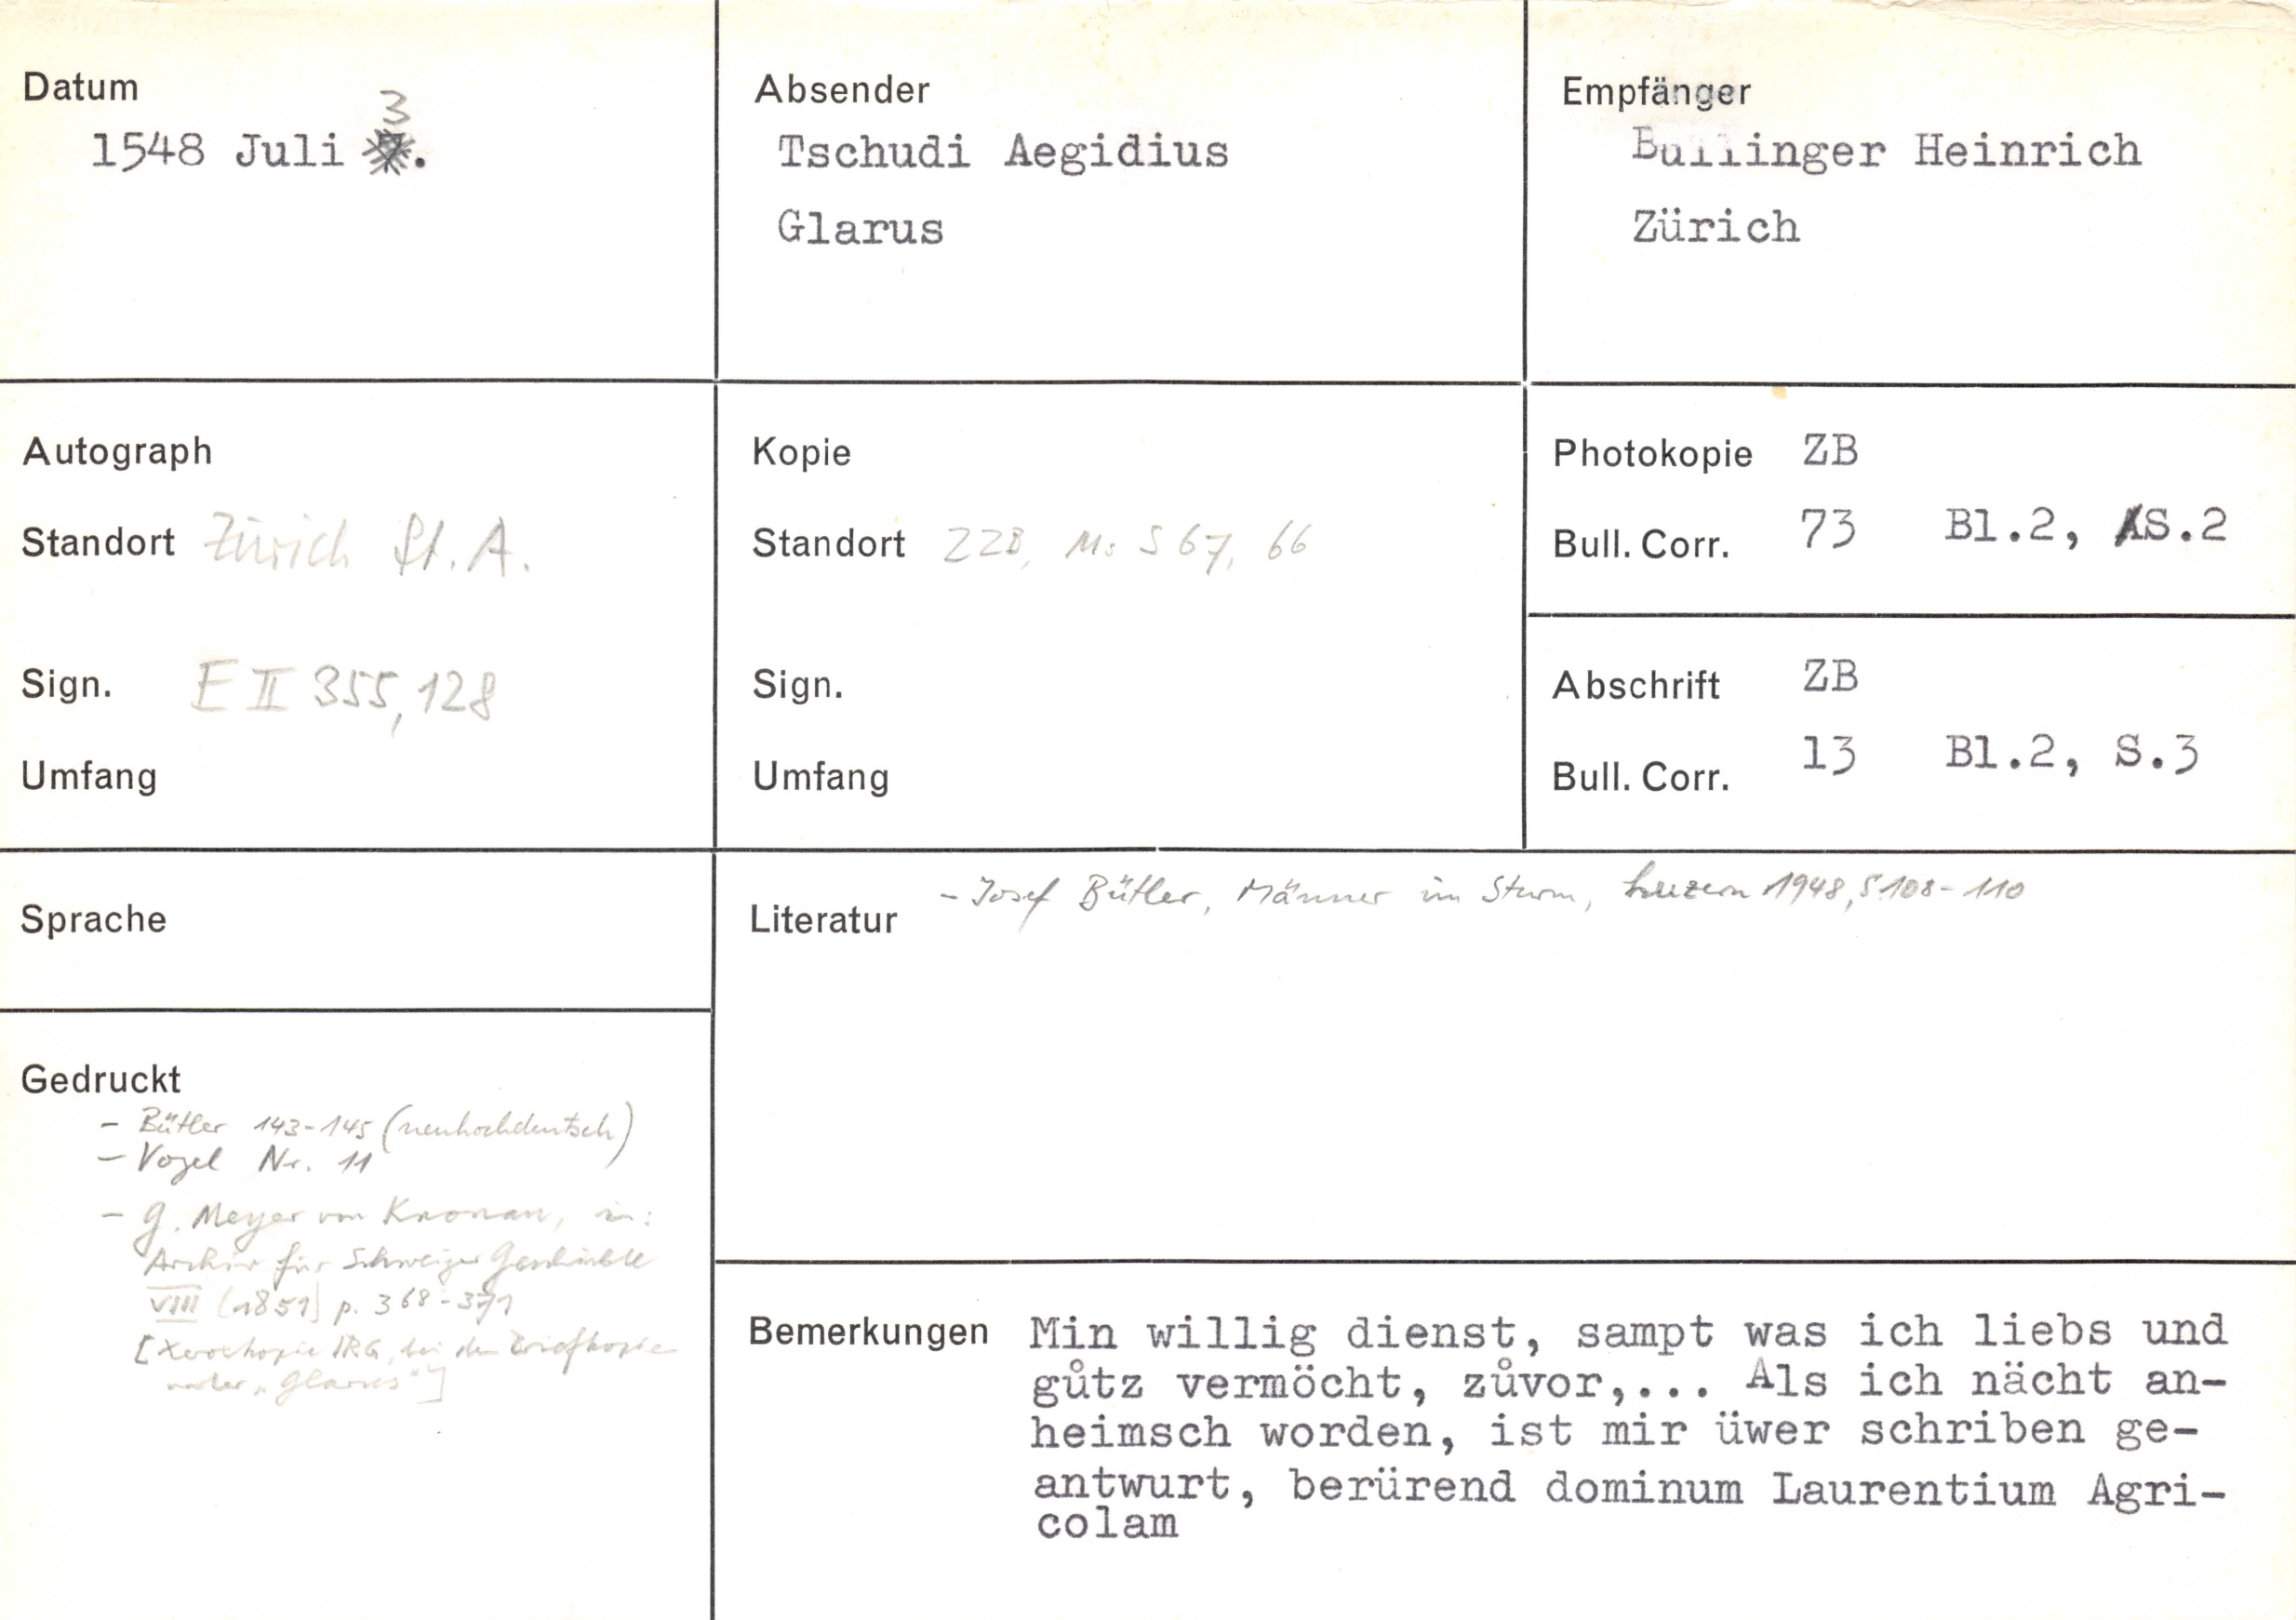 Datum
3
1548 Juli .
Absender
Tschudi Aegidius
Glarus
Empfänger
Bullinger Heinrich
Zürich
Autograph
Standort Zürich St. A.
Sign. E II 355, 128
Umfang
Kopie
Standort ZZB, Ms S 67, 66
Sign.
Umfang
Photokopie ZB
Bull. Corr. 73 Bl.2, S.2
Abschrift ZB
Bull. Corr. 13 Bl.2, S.3
Sprache
Literatur - Josef Bütler, Männer im Sturm, Luzern 1948, S. 108-110
Gedruckt
- Bütler 143-145 (neuhochdeutsch)
- Vogel Nr. 11
- G. Meyer von Knonau, in:
Archiv für Schweizer Geschichte
VIII (1851) p. 368-371
[Xerokopie IRG, bei den Briefkopien
unter "Glarus"]
Bemerkungen Min willig dienst, sampt was ich liebs und
gůtz vermöcht, zůvor,... Als ich nächt an-
heimsch worden, ist mir üwer schriben ge-
antwurt, berürend dominum Laurentium Agri-
colam